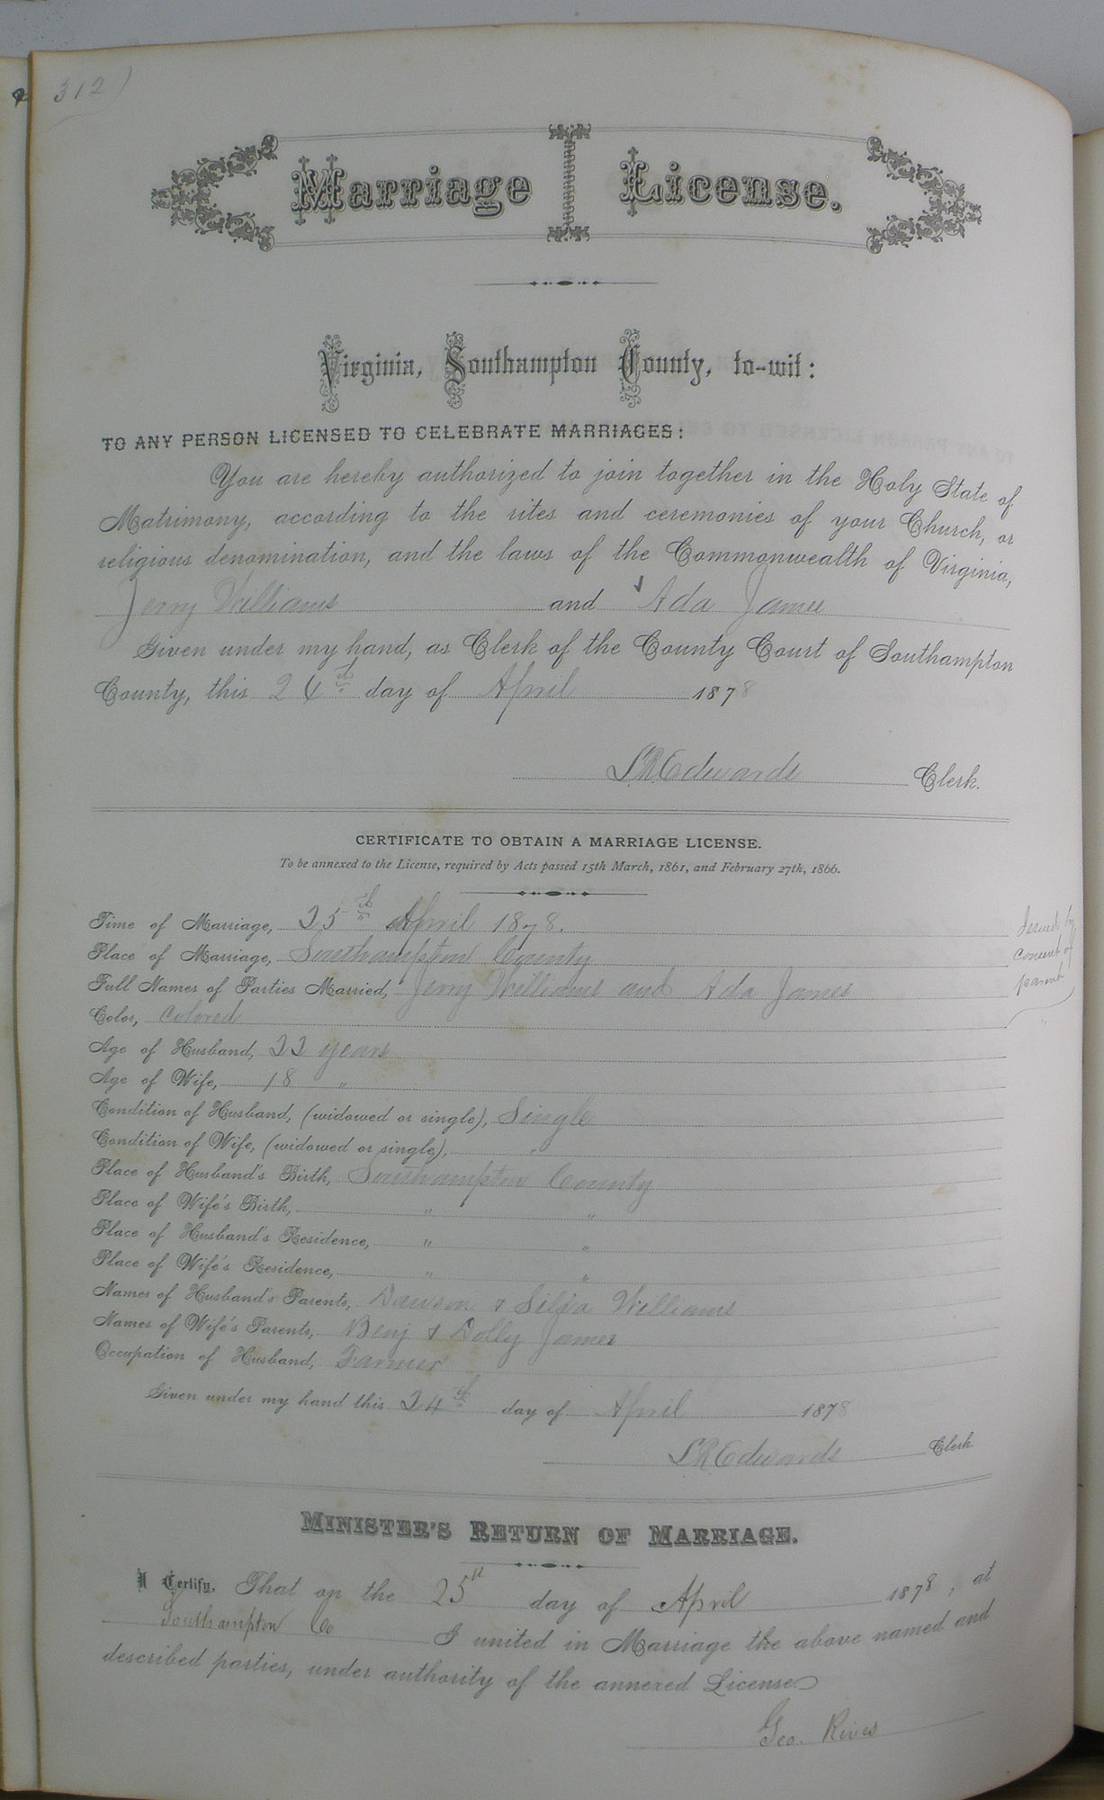 312)
Marriage License.
Virginia, Southampton County, to-wit:
TO ANY PERSON LICENSED TO CELEBRATE MARRIAGES:
You are hereby authorized to join together in the Holy State of
Matrimony, according to the rites and ceremonies of your Church, or
religious denomination, and the laws of the Commonwealth of Virginia,
Jerry Williams and Ada James
Given under my hand, as Clerk of the County Court of Southampton
County, this 24th day of April 1878
L R Edwards Clerk.
CERTIFICATE TO OBTAIN A MARRIAGE LICENSE.
To be annexed to the License, required by Acts passed 15th March, 1861, and February 27th, 1866.
Time of Marriage, 25th April 1878.
Place of Marriage, Southampton County
Full Names of Parties Married, Jerry Williams and Ada James
Color, Colored
Age of Husband, 22 years
Age of Wife, 18 "
Condition of Husband, (widowed or single), Single
Condition of Wife, (widowed or single), "
Place of Husband's Birth, Southampton County
Place of Wife's Birth, " "
Place of Husband's Residence, " "
Place of Wife's Residence, " "
Names of Husband's Parents, Dawson & Silvia Williams
Names of Wife's Parents, Benj & Dolly James
Occupation of Husband, Farmer
Issued by
consent of
parents
Given under my hand this 24th day of April 1878
L R Edwards Clerk
MINISTER'S RETURN OF MARRIAGE.
I Certify, That on the 25th day of April 1878, at
Southampton Co I united in Marriage the above named and
described parties, under authority of the annexed License
Geo. Rives